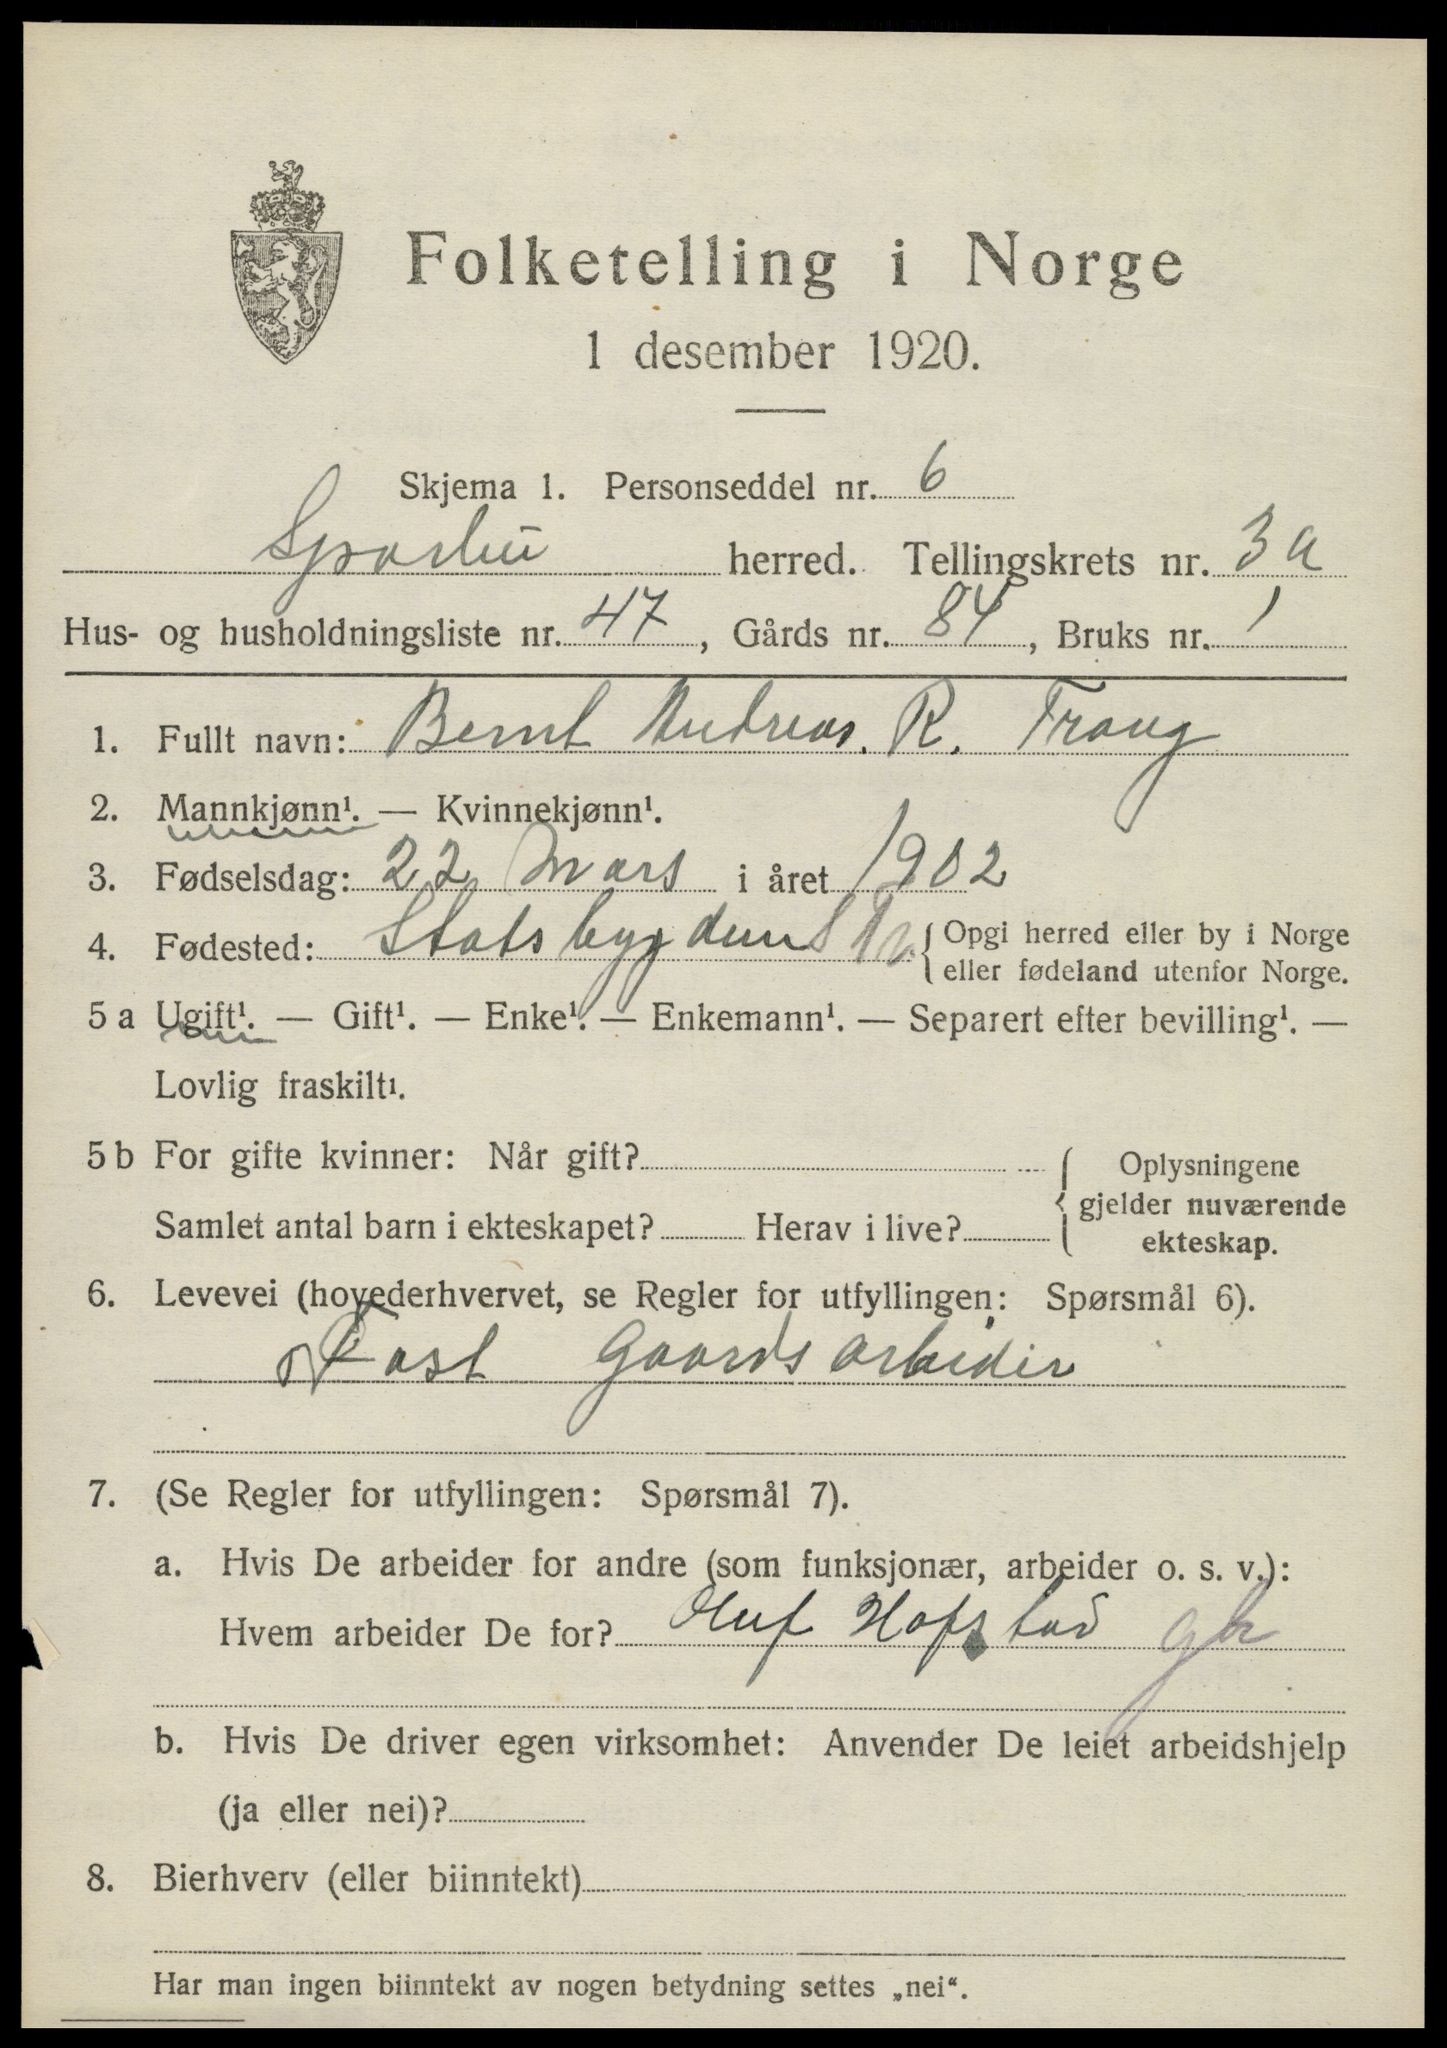 Folketelling i Norge
1 desember 1920.
Skjema 1. Personseddel nr. 6
Sparbu herred. Tellingskrets nr. 3a
Hus- og husholdningsliste nr. 47, Gårds nr. 84, Bruks nr. 1
1. Fullt navn: Bernt Andreas. R. Traug
2. Mannkjønn¹. — Kvinnekjønn¹.
3. Fødselsdag: 22 Mars i året 1902
4. Fødested: Statsbygden S Tr. { Opgi herred eller by i Norge
eller fødeland utenfor Norge.
5 a Ugift¹. — Gift¹. — Enke¹. — Enkemann¹. — Separert efter bevilling¹. —
Lovlig fraskilt¹.
5 b For gifte kvinner: Når gift? { Oplysningene
gjelder nuværende
Samlet antal barn i ekteskapet? Herav i live? ekteskap.
6. Levevei (hovederhvervet, se Regler for utfyllingen: Spørsmål 6).
Fast Gaardsarbeider
7. (Se Regler for utfyllingen: Spørsmål 7).
a. Hvis De arbeider for andre (som funksjonær, arbeider o. s. v.):
Hvem arbeider De for? Oluf Hofstad gbr
b. Hvis De driver egen virksomhet: Anvender De leiet arbeidshjelp
(ja eller nei)?
8. Bierhverv (eller biinntekt)
Har man ingen biinntekt av nogen betydning settes „nei“.